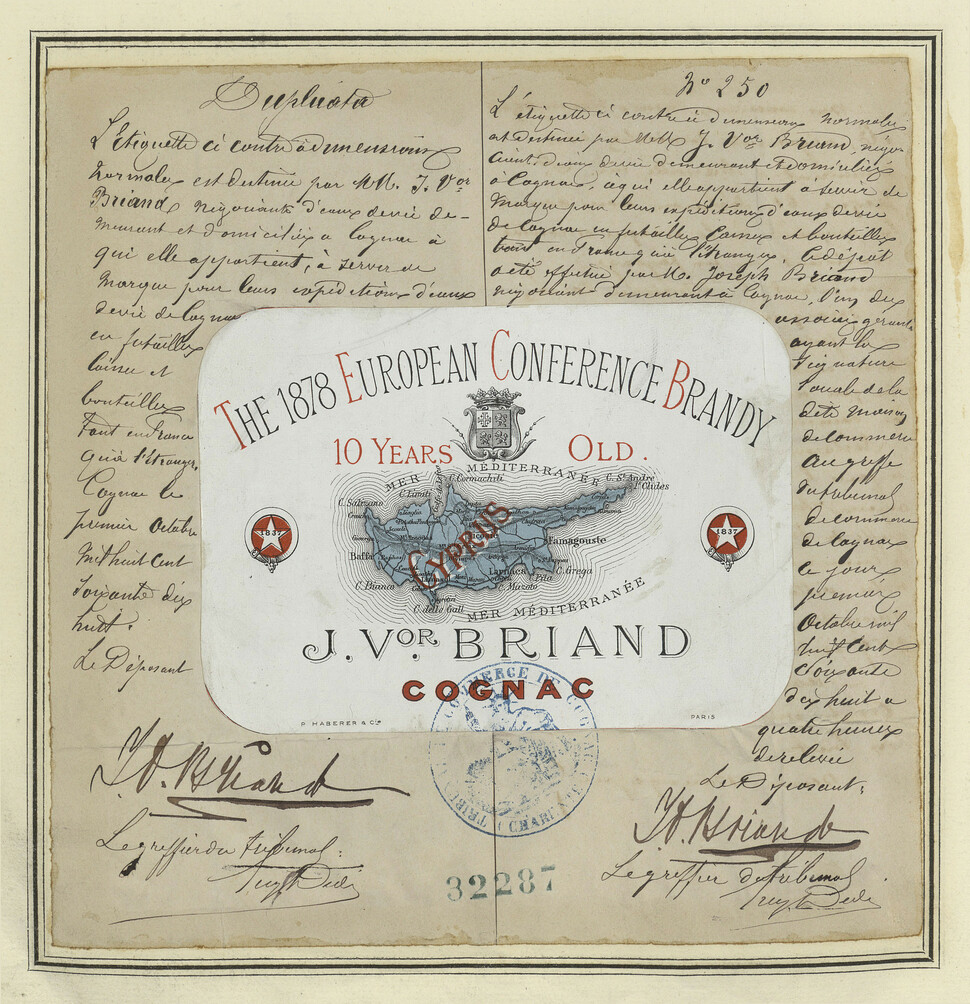 Duplicata
L'étiquette ci contre à dimensions
normales est destinée par MM. J. Vor
Briand, négociants d'eaux de vie de-
meurant et domiciliés à Cognac à
qui elle appartient, à servir de
marque pour leurs expéditions d'eaux
de vie de Cognac
en futailles
caisses et
bouteilles
tant en France
qu'à l'étranger.
Cognac le
premier Octobre
mil huit cent
soixante dix
huit.
Le Déposant
J. V. Briand
Le greffier du tribunal:
No 250
L'étiquette ci contre à dimensions normales
est destinée par MM. J. Vor Briand, négo-
ciants d'eaux de vie demeurant et domiciliés
à Cognac, à qui elle appartient à servir de
marque pour leurs expéditions d'eaux de vie
de Cognac en futailles, caisses et bouteilles
tant en France qu'à l'étranger. Le dépôt
a été effectué par M. Joseph Briand
négociant demeurant à Cognac, l'un des
associés gérants
ayant la
signature
sociale de la
dite maison
de commerce
au greffe
du tribunal
de commerce
de Cognac
le jour
premier
Octobre mil
huit cent
soixante
dix huit à
quatre heures
de relevée
Le Déposant:
J. V. Briand
Le greffier du tribunal
THE 1878 EUROPEAN CONFERENCE BRANDY
10 YEARS OLD.
MER MÉDITERRANÉE
C. Cormachiti
C. St André
Clides
C. Limiti
C. Salizano
Famagouste
Baffa
Larnaca
C. Grega
C. Pila
C. Bianco
C. Mazoto
C. delle Gatt
CYPRUS
MER MÉDITERRANÉE
1837
1837
J. VOR. BRIAND
COGNAC
P. HABERER & Cie
PARIS
TRIBUNAL DE COMMERCE DE COGNAC (CHARENTE)
32287